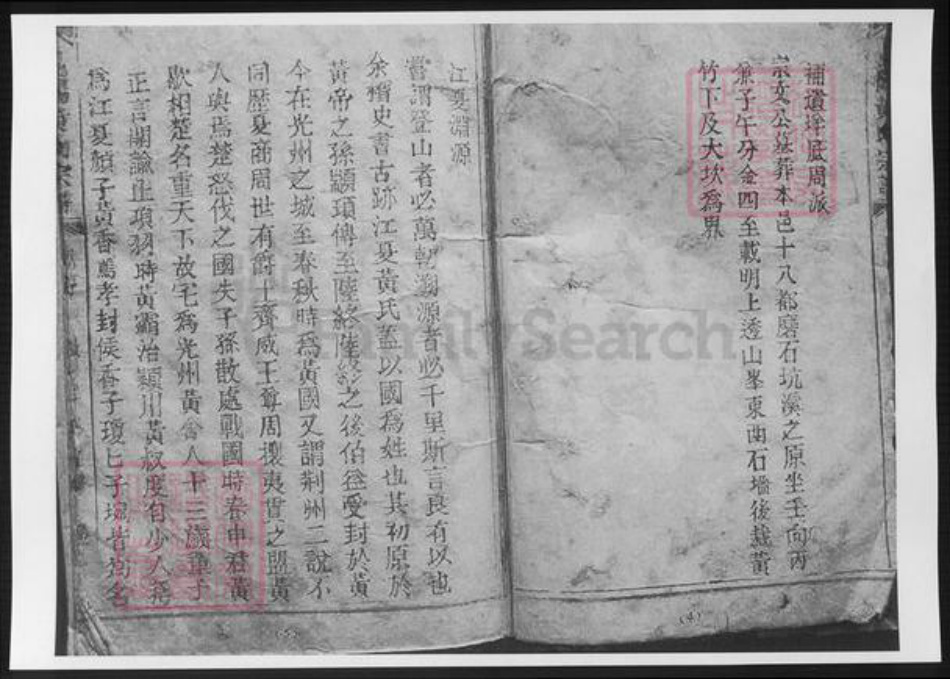 補遺坪底周派
崇文公墓葬本邑十八都磨石坑溪之原坐壬向丙
兼子午分金四至載明上透山峯東由石墻後裁黃
竹下及大坎為界
(4)
江夏淵源
嘗謂登山者必萬軔溯源者必千里斯言良有以也
余稽史書古跡江夏黃氏蓋以國為姓也其初原於
黃帝之孫顓頊傳至陸終陸終之後伯益受封於黃
今在光州之城至春秋時為黃國又謂荆州二說不
同歷夏商周世有爵土齊威王尊周攘夷貫之盟黃
人與焉楚怒伐之國失子孫散處戰國時春申君黃
歇相楚名重天下故宅為光州黃 人十三歲
正言開諭止項羽時黃霸治潁川黃叔度自少人稱
為江夏顏子黃香薦孝封侯香子瓊七子 皆
(5)
FamilySearch